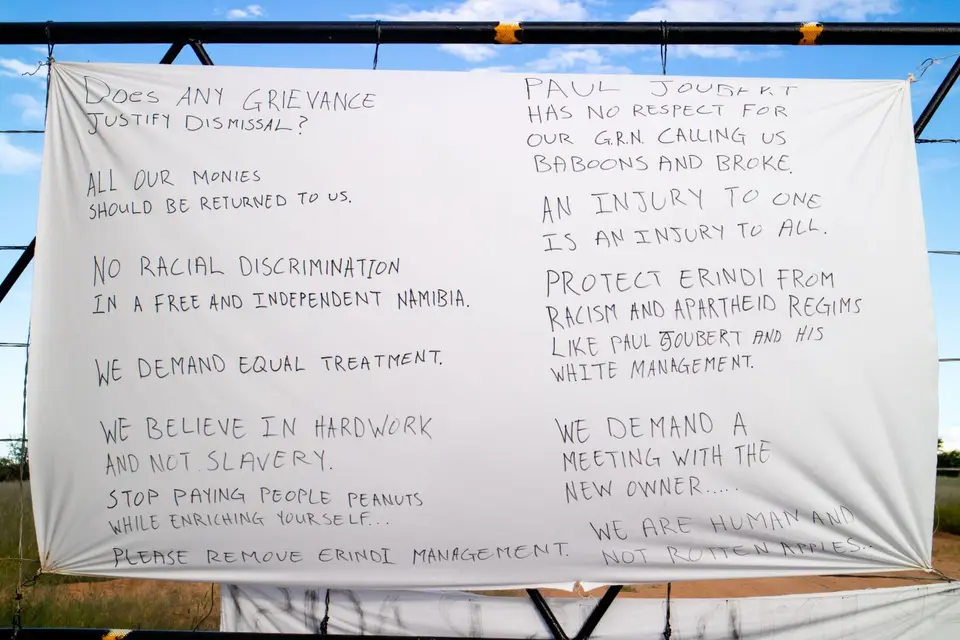 Does ANY GRIEVANCE
JUSTIFY DISMISSAL?
ALL OUR MONIES
SHOULD BE RETURNED TO US.
NO RACIAL DISCRIMINATION
IN A FREE AND INDEPENDENT NAMIBIA.
WE DEMAND EQUAL TREATMENT.
WE BELIEVE IN HARDWORK
AND NOT SLAVERY.
STOP PAYING PEOPLE PEANUTS
WHILE ENRICHING YOURSELF...
PLEASE REMOVE ERINDI MANAGEMENT.
PAUL JOUBERT
HAS NO RESPECT FOR
OUR G.R.N. CALLING US
BABOONS AND BROKE.
AN INJURY TO ONE
IS AN INJURY TO ALL.
PROTECT ERINDI FROM
RACISM AND APARTHEID REGIMS
LIKE PAUL JOUBERT AND HIS
WHITE MANAGEMENT.
WE DEMAND A
MEETING WITH THE
NEW OWNER.....
WE ARE HUMAN AND
NOT ROTTEN APPLES...